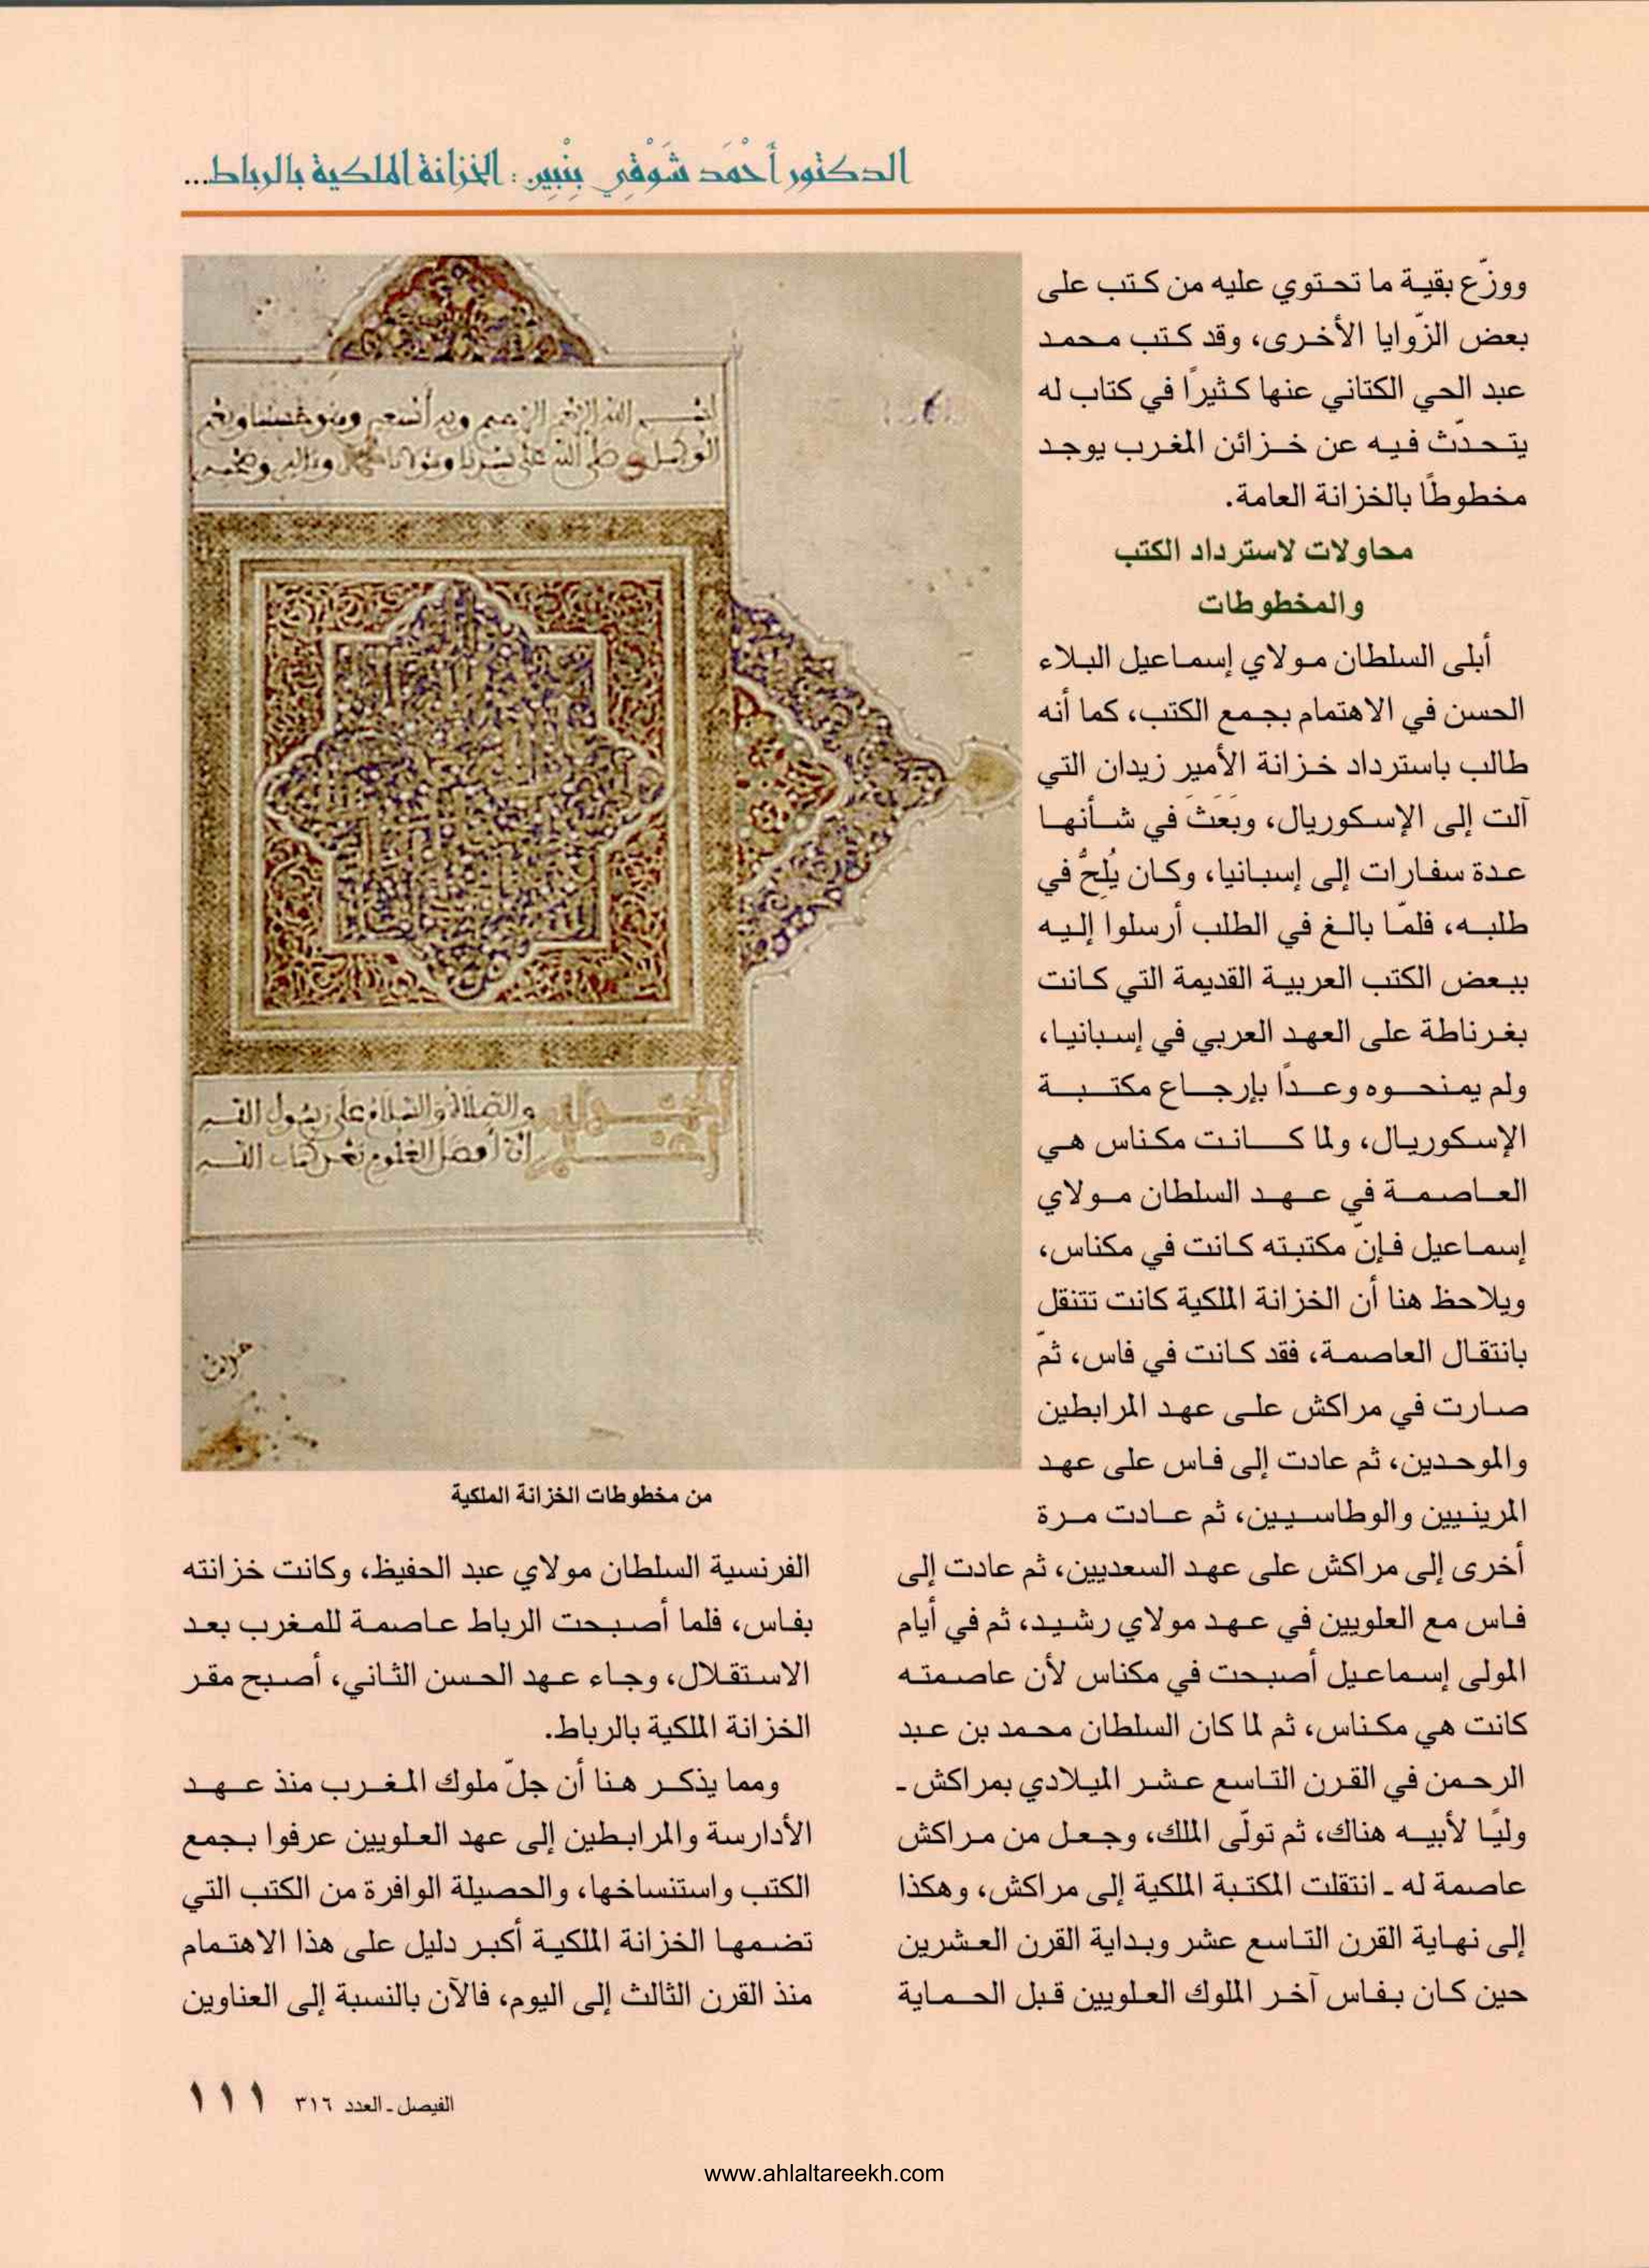 الدكتور أَحْمَد شَوْقِي بِنْبِين : الخزانة الملكية بالرباط...
ووزّع بقية ما تحتوي عليه من كتب على
بعض الزّوايا الأخرى، وقد كتب محمد
عبد الحي الكتاني عنها كثيرًا في كتاب له
يتحدّث فيه عن خزائن المغرب يوجد
مخطوطًا بالخزانة العامة.
محاولات لاسترداد الكتب
والمخطوطات
أبلى السلطان مولاي إسماعيل البلاء
الحسن في الاهتمام بجمع الكتب، كما أنه
طالب باسترداد خزانة الأمير زيدان التي
آلت إلى الإسكوريال، وبَعَثَ في شأنها
عدة سفارات إلى إسبانيا، وكان يُلِحُّ في
طلبه، فلمّا بالغ في الطلب أرسلوا إليه
ببعض الكتب العربية القديمة التي كانت
بغرناطة على العهد العربي في إسبانيا،
ولم يمنحوه وعدًا بإرجاع مكتبة
الإسكوريال، ولما كانت مكناس هي
العاصمة في عهد السلطان مولاي
إسماعيل فإنّ مكتبته كانت في مكناس،
ويلاحظ هنا أن الخزانة الملكية كانت تتنقل
بانتقال العاصمة، فقد كانت في فاس، ثمّ
صارت في مراكش على عهد المرابطين
والموحدين، ثم عادت إلى فاس على عهد
المرينيين والوطاسيين، ثم عادت مرة
أخرى إلى مراكش على عهد السعديين، ثم عادت إلى
فاس مع العلويين في عهد مولاي رشيد، ثم في أيام
المولى إسماعيل أصبحت في مكناس لأن عاصمته
كانت هي مكناس، ثم لما كان السلطان محمد بن عبد
الرحمن في القرن التاسع عشر الميلادي بمراكش ـ
وليًا لأبيه هناك، ثم تولّى الملك، وجعل من مراكش
عاصمة له ـ انتقلت المكتبة الملكية إلى مراكش، وهكذا
إلى نهاية القرن التاسع عشر وبداية القرن العشرين
حين كان بفاس آخر الملوك العلويين قبل الحماية
بسم الله الرحمن الرحيم وبه أستعين وهو حسبنا ونعم
الوكيل وصلى الله على سيدنا ومولانا محمد وءاله وصحبه
والصلاة والسلام على رسول الله
أفضل العلوم كتاب الله
من مخطوطات الخزانة الملكية
الفرنسية السلطان مولاي عبد الحفيظ، وكانت خزانته
بفاس، فلما أصبحت الرباط عاصمة للمغرب بعد
الاستقلال، وجاء عهد الحسن الثاني، أصبح مقر
الخزانة الملكية بالرباط.
ومما يذكر هنا أن جلّ ملوك المغرب منذ عهد
الأدارسة والمرابطين إلى عهد العلويين عرفوا بجمع
الكتب واستنساخها، والحصيلة الوافرة من الكتب التي
تضمها الخزانة الملكية أكبر دليل على هذا الاهتمام
منذ القرن الثالث إلى اليوم، فالآن بالنسبة إلى العناوين
الفيصل ـ العدد ٣١٦ ١١١
www.ahlaltareekh.com